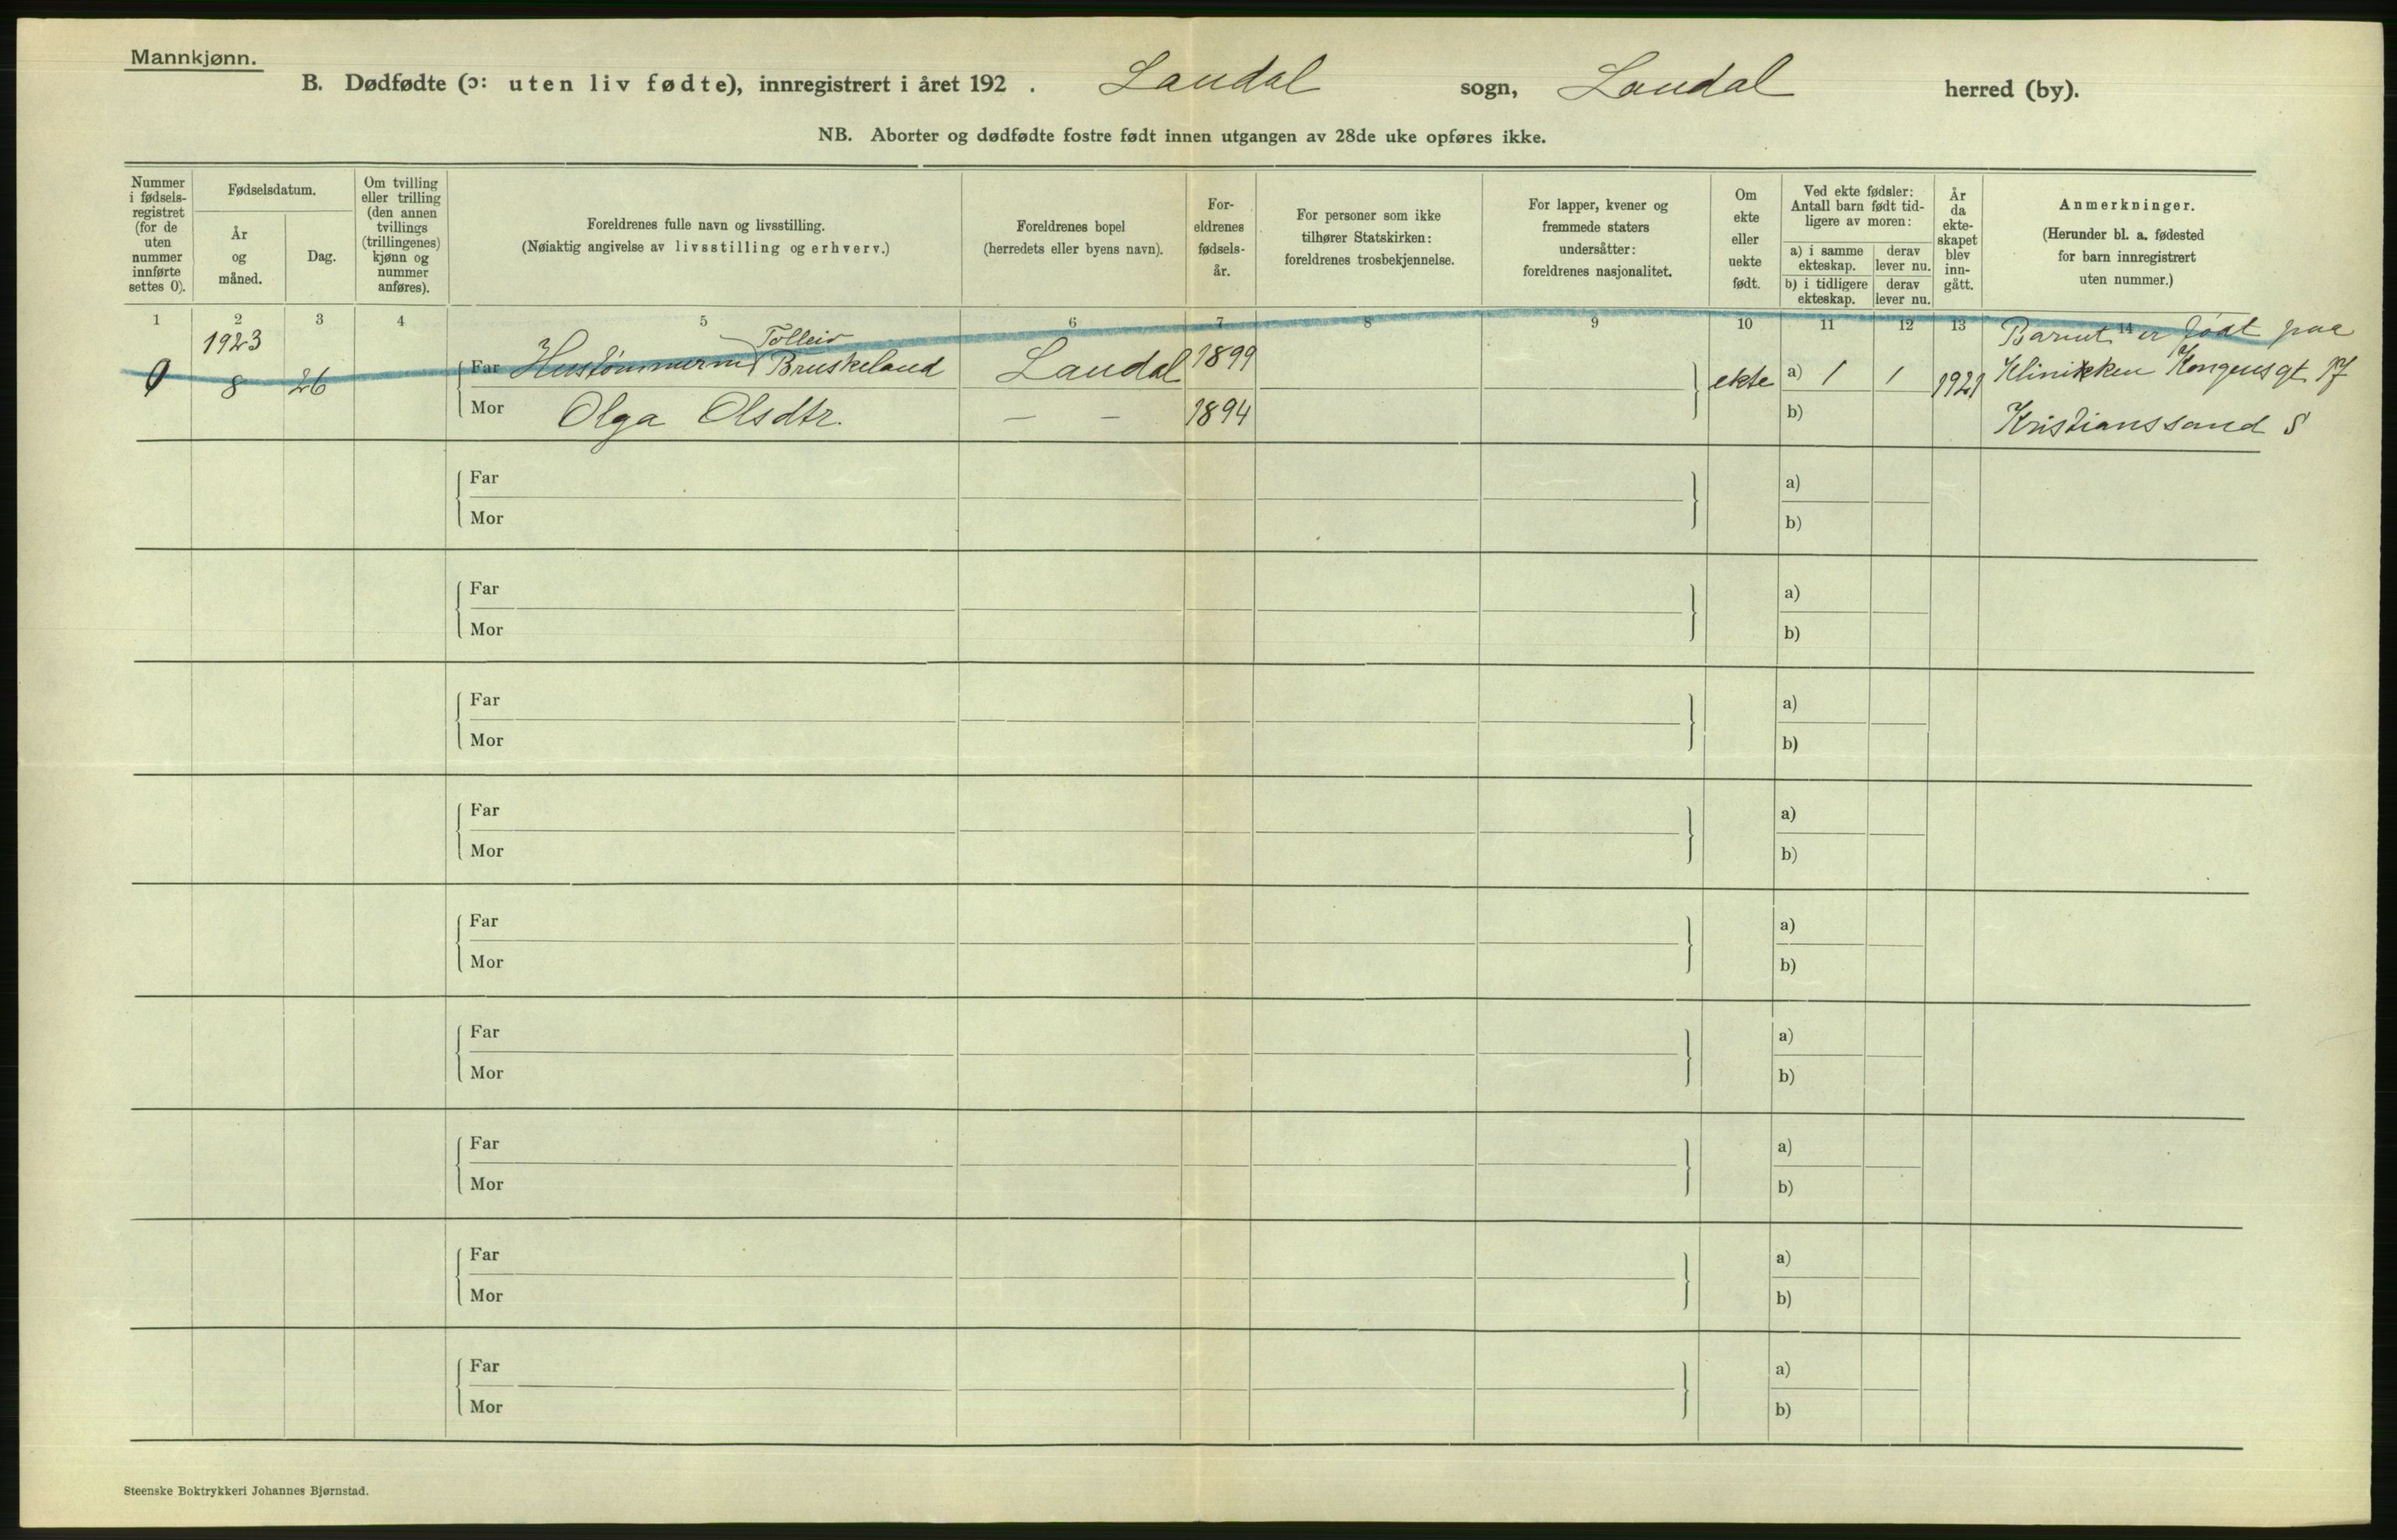 Mannkjønn.
B. Dødfødte (ɔ: uten liv fødte), innregistrert i året 192 . Laudal sogn, Laudal herred (by).
NB. Aborter og dødfødte fostre født innen utgangen av 28de uke opføres ikke.
Nummer
i fødsels-
registret
(for de
uten
nummer
innførte
settes 0).
Fødselsdatum.
År
og
måned.
Dag.
Om tvilling
eller trilling
(den annen
tvillings
(trillingenes)
kjønn og
nummer
anføres).
Foreldrenes fulle navn og livsstilling.
(Nøiaktig angivelse av livsstilling og erhverv.)
Foreldrenes bopel
(herredets eller byens navn).
For-
eldrenes
fødsels-
år.
For personer som ikke
tilhører Statskirken:
foreldrenes trosbekjennelse.
For lapper, kvener og
fremmede staters
undersåtter:
foreldrenes nasjonalitet.
Om
ekte
eller
uekte
født.
Ved ekte fødsler:
Antall barn født tid-
ligere av moren:
a) i samme
ekteskap.
derav
lever nu.
b) i tidligere
ekteskap.
derav
lever nu.
År
da
ekte-
skapet
blev
inn-
gått.
Anmerkninger.
(Herunder bl. a. fødested
for barn innregistrert
uten nummer.)
1 2 3 4 5 6 7 8 9 10 11 12 13 14
1923 Tolleiv Barnet er født paa
0 8 26 Far Hustømmerm. Bruskeland Laudal 1899 ekte a) 1 1 1921 Klinikken Kongensgt 17
Mor Olga Olsdtr. — — 1894 b) Kristianssand S
Far a)
Mor b)
Far a)
Mor b)
Far a)
Mor b)
Far a)
Mor b)
Far a)
Mor b)
Far a)
Mor b)
Far a)
Mor b)
Far a)
Mor b)
Far a)
Mor b)
Steenske Boktrykkeri Johannes Bjørnstad.